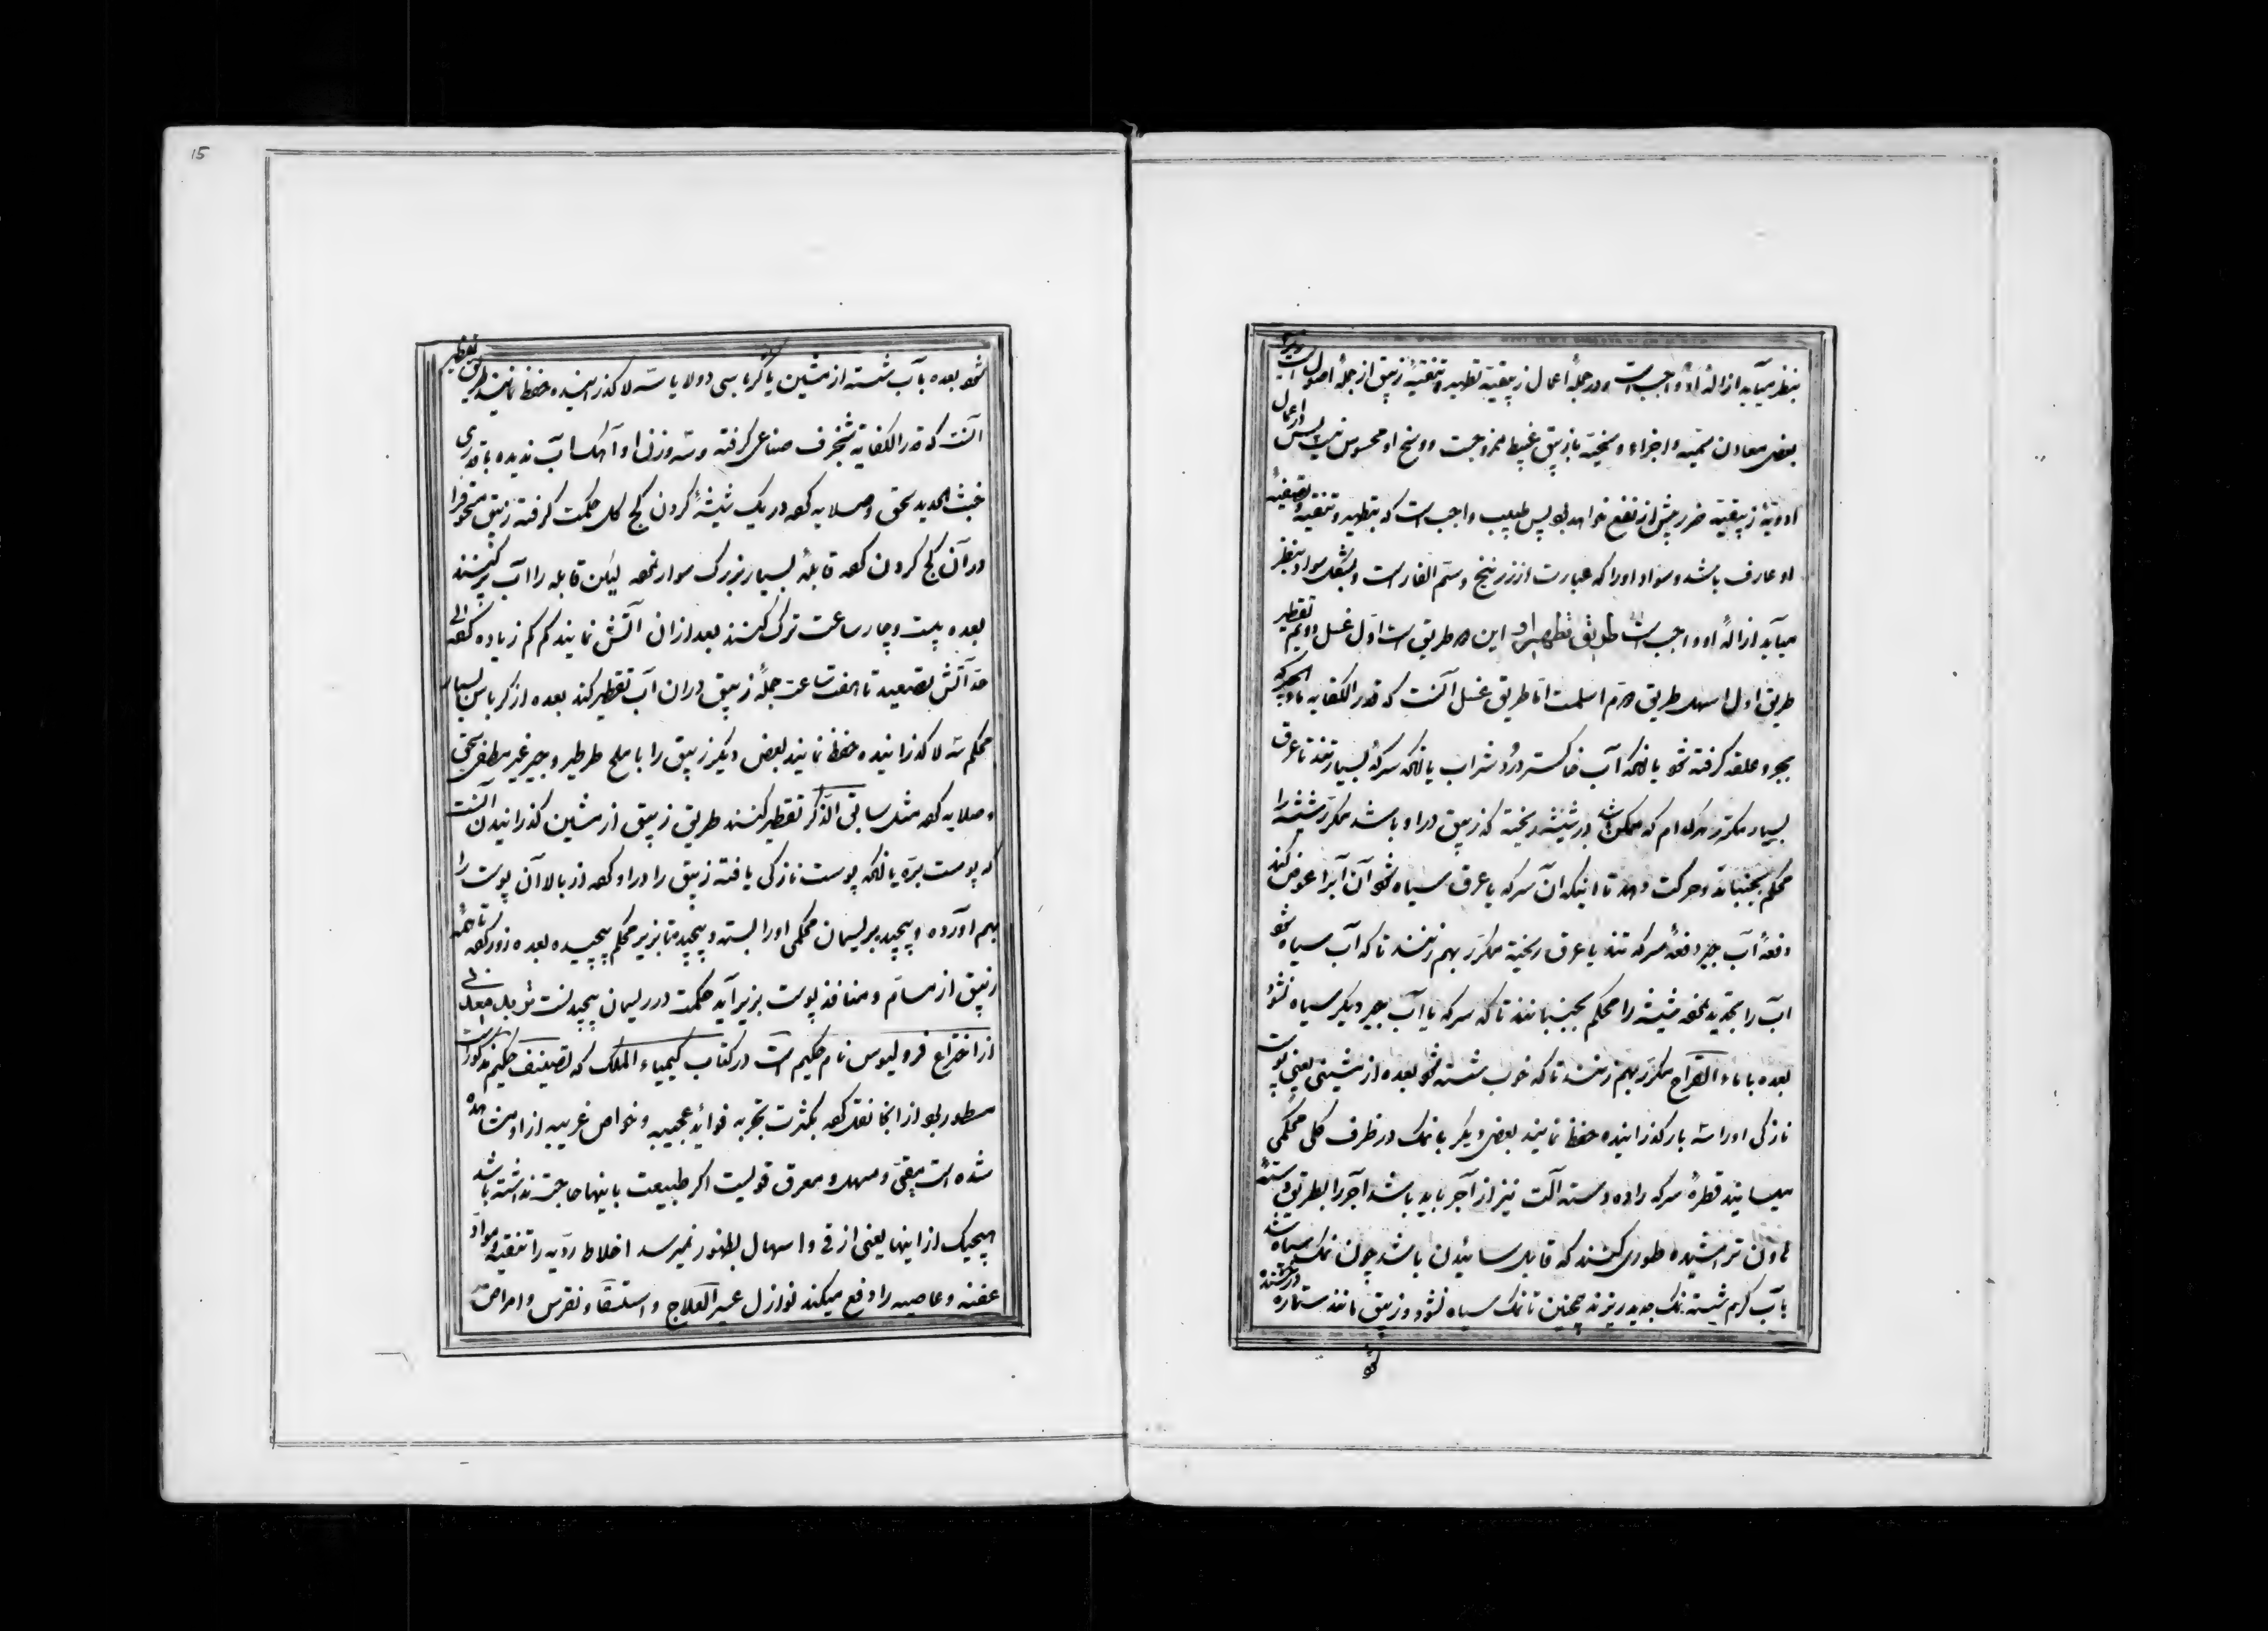 بنظر میآید ازالهٔ او واجب است و در جملهٔ اعمال زیبقیّه تطهیر و تنقیهٔ زیبق از جملهٔ اصول است
بعضی معادن سمّیه و اجزاء وسخیّه با زیبق غبیط ممزوجست و وسخ او محسوس نیست پس در اعمال
ادویهٔ زیبقیّه ضرر پیش از نفع خواهد بود پس طبیب واجب است که بتطهیر و تنقیه و تصفیهٔ
او عارف باشد و سواد او را که عبارت از زرنیخ و سمّ الفار است و بشکل سواد بنظر
میآید ازالهٔ او واجب است طریق تطهیر او این دو طریق است اوّل غسل دویم تقطیر
طریق اول اسهل طریق دوّم اسلمست امّا طریق غسل آنست که قدر الکفایه
گرفته شود یا آنکه آب خاکستر دُرد شراب یا آنکه سرکهٔ بسیار تند یا عرق
بسیار مکرّر هرکدام که ممکن باشد در شیشه ریخته که زیبق در او باشد مکرّر شیشه را
محکم بجنباند و حرکت دهد تا اینکه آن سرکه یا عرق سیاه شود آن آب را عوض کند
دفعهٔ آب جیر دفعهٔ سرکه تند یا عرق ریخته مکرّر بهم زنند تا که آب سیاه شود
آب را تجدید نموده شیشه را محکم بجنبانند تا که سرکه یا آب جیر دیگر سیاه نشود
بعده با ماء القراح مکرّر بهم زنند تا که خوب شسته شود بعده از مشین یعنی پوست
نازکی او را سه بار گذرانیده حفظ نمایند بعضی دیگر با نمک در ظرف گلی محکمی
میسایند قطرهٔ سرکه داده دسته آلت نیز از آجر باید باشد آجر را بطریق دستهٔ
هاون تراشیده طوری کنند که قابل سائیدن باشد چون نمک سیاه شد
بآب گرم شسته نمک جدید ریزند همچنین تا نمک سیاه نشود و زیبق مانند ستاره درخشنده
شود
شود بعده بآب شسته از مشین یا کرباسی دولا یا سه لا گذرانیده حفظ نمایند طریق تقطیر
آنست که قدر الکفایه شنجرف صناعی گرفته و سه وزن او آهک آب ندیده با قدری
خبث الحدید سحق و صلایه کرده در یک شیشهٔ گردن کج گل حکمت گرفته زیبق مسحوق را
در آن کج گردن کرده قابلهٔ بسیار بزرگ سوار نموده لیکن قابله را آب پر کنند
بعده بیست و چار ساعت ترک کنند بعد از آن آتش نمایند کم کم زیاده کرده الی
حدّ آتش تصعید تا هفت ساعت جملهٔ زیبق در آن آب تقطیر کند بعده از کرباس بسیار
محکم سه لا گذرانیده حفظ نمایند بعضی دیگر زیبق را با ملح طرطیر و جیر غیر مطفی سحق
و صلایه کرده مثل سابق الذّکر تقطیر کنند طریق زیبق از مشین گذرانیدن آنست
که پوست برّه یا آنکه پوست نازکی یافته زیبق را در او کرده از بالا آن پوست را
بهم آورده و پیچیده بریسمان محکمی او را بسته و پیچیده تا بزیر محکم پیچیده بعده زور کرده تا همهٔ
زیبق از مسامّ و منافذ پوست بزیر آید حکمت در ریسمان پیچیدنست
از اختراع فرولیوس نام حکیم است در کتاب کیمیاء الملک که تصنیف حکیم مذکور است
مسطور بود از آنجا نقل کرده بکثرت تجربه فواید عجیبه و خواص غریبه از او مشاهده
شده است مقیّی و مسهل و معرق قویست اگر طبیعت باینها حاجت نداشته باشد
هیچیک از اینها یعنی از قی و اسهال بظهور نمیرسد اخلاط ردّیه را تنقیه و موادّ
عفنه و عاصیه را دفع میکند نوازل عسر العلاج و استسقا و نقرس و امراض
15